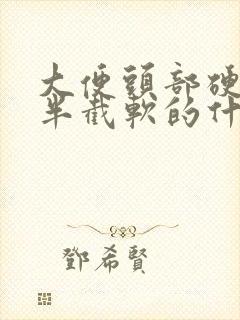 大便頭部硬
半截軟的什
鄧希賢